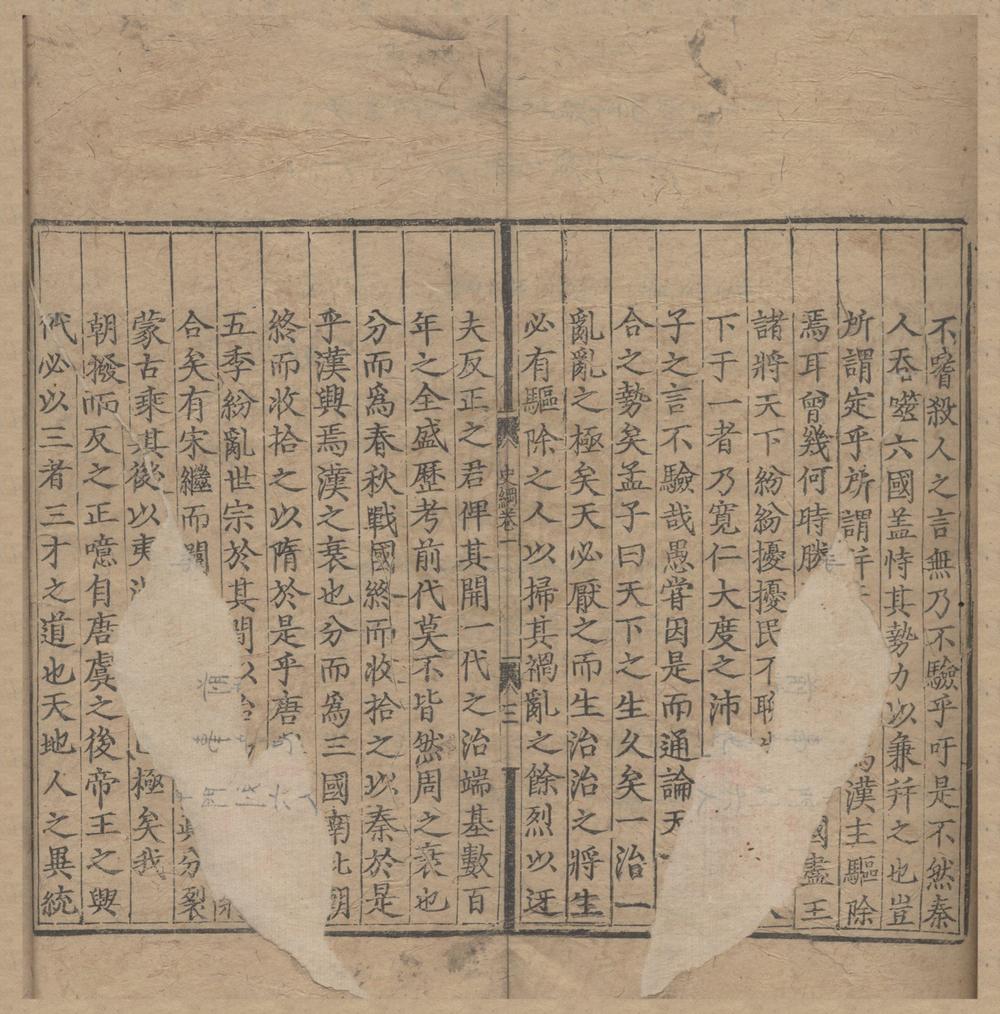 不嗜殺人之言無乃不驗乎吁是不然秦
人吞噬六國盖恃其勢力以兼并之也豈
所謂定乎所謂 漢主驅除
焉耳曾幾何時勝 國盡王
諸將天下紛紛擾擾民不聊
下于一者乃寬仁大度之沛
子之言不驗哉愚嘗因是而通論天
合之勢矣孟子曰天下之生久矣一治一
亂亂之極矣天必厭之而生治治之將生
必有驅除之人以掃其禍亂之餘烈以迓
史綱卷一
三
夫反正之君俾其開一代之治端基數百
年之全盛歷考前代莫不皆然周之衰也
分而爲春秋戰國終而收拾之以秦於是
乎漢興焉漢之衰也分而爲三國南北朝
終而收拾之以隋於是乎唐
五季紛亂世宗於其間以
合矣有宋繼而 分裂
蒙古乘其後以夷 極矣我
朝撥而反之正噫自唐虞之後帝王之興
代必以三者三才之道也天地人之異統